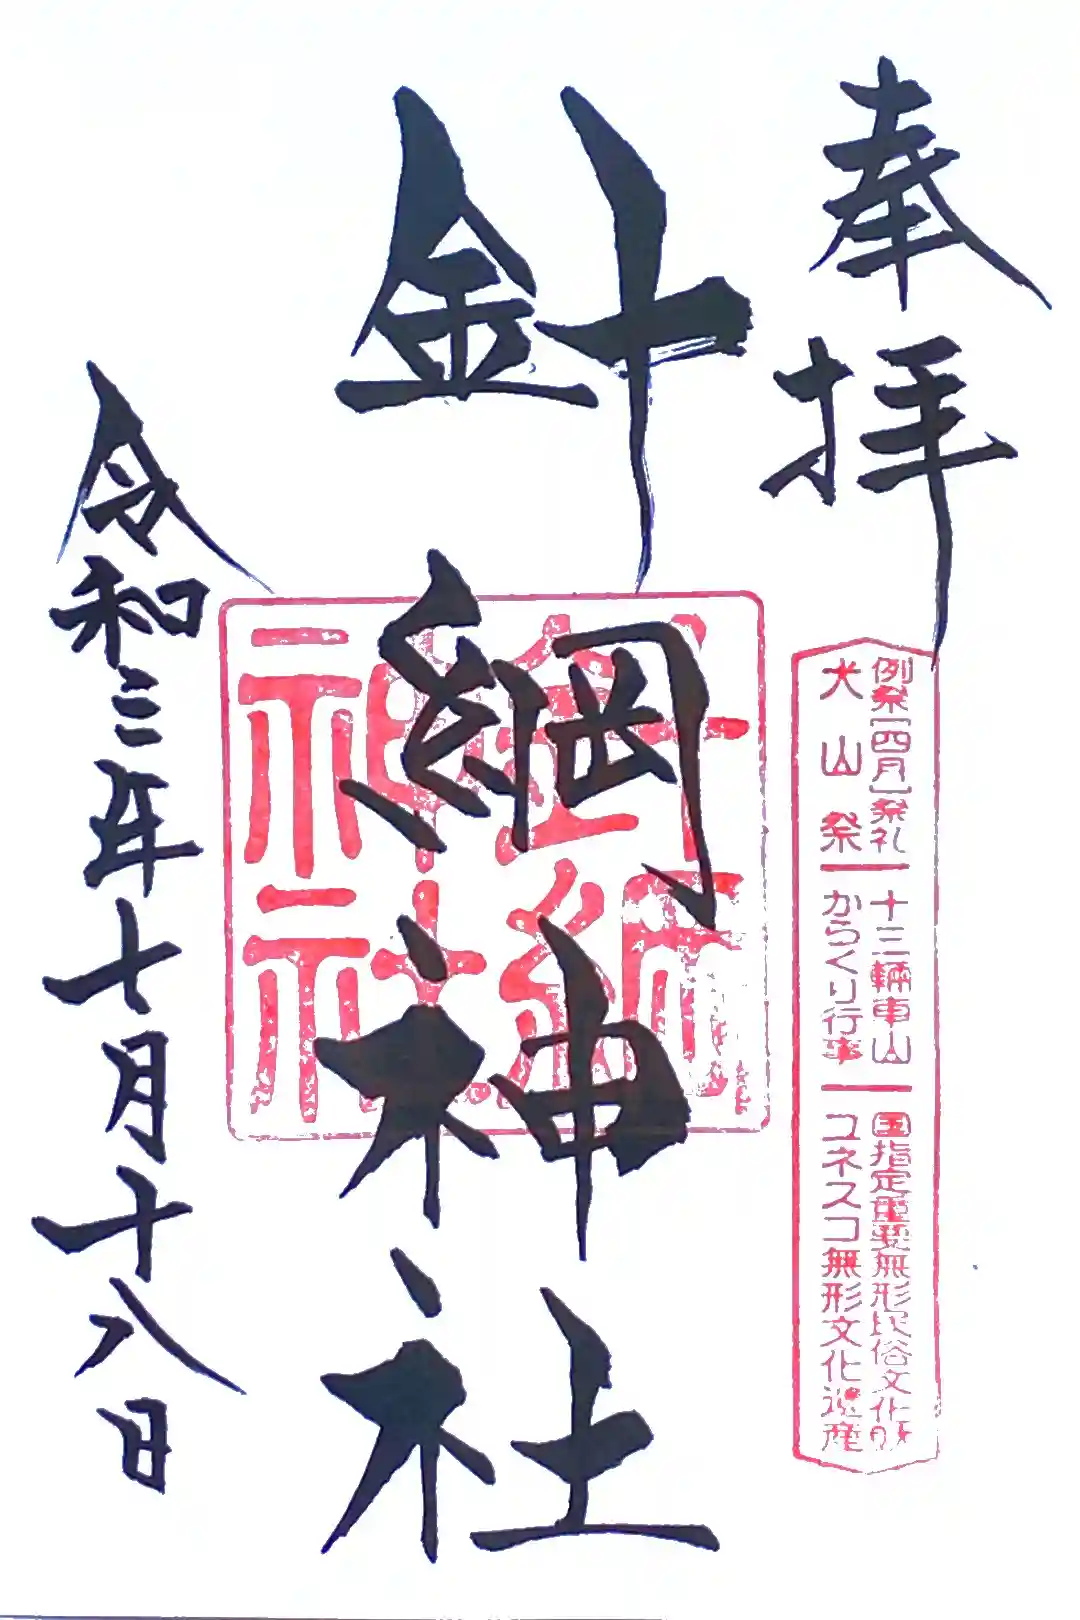 奉拝
例祭[四月]祭礼 十三輛車山 国指定重要無形民俗文化財
犬山祭 からくり行事 ユネスコ無形文化遺産
針綱神社
針綱神社
令和三年七月十八日